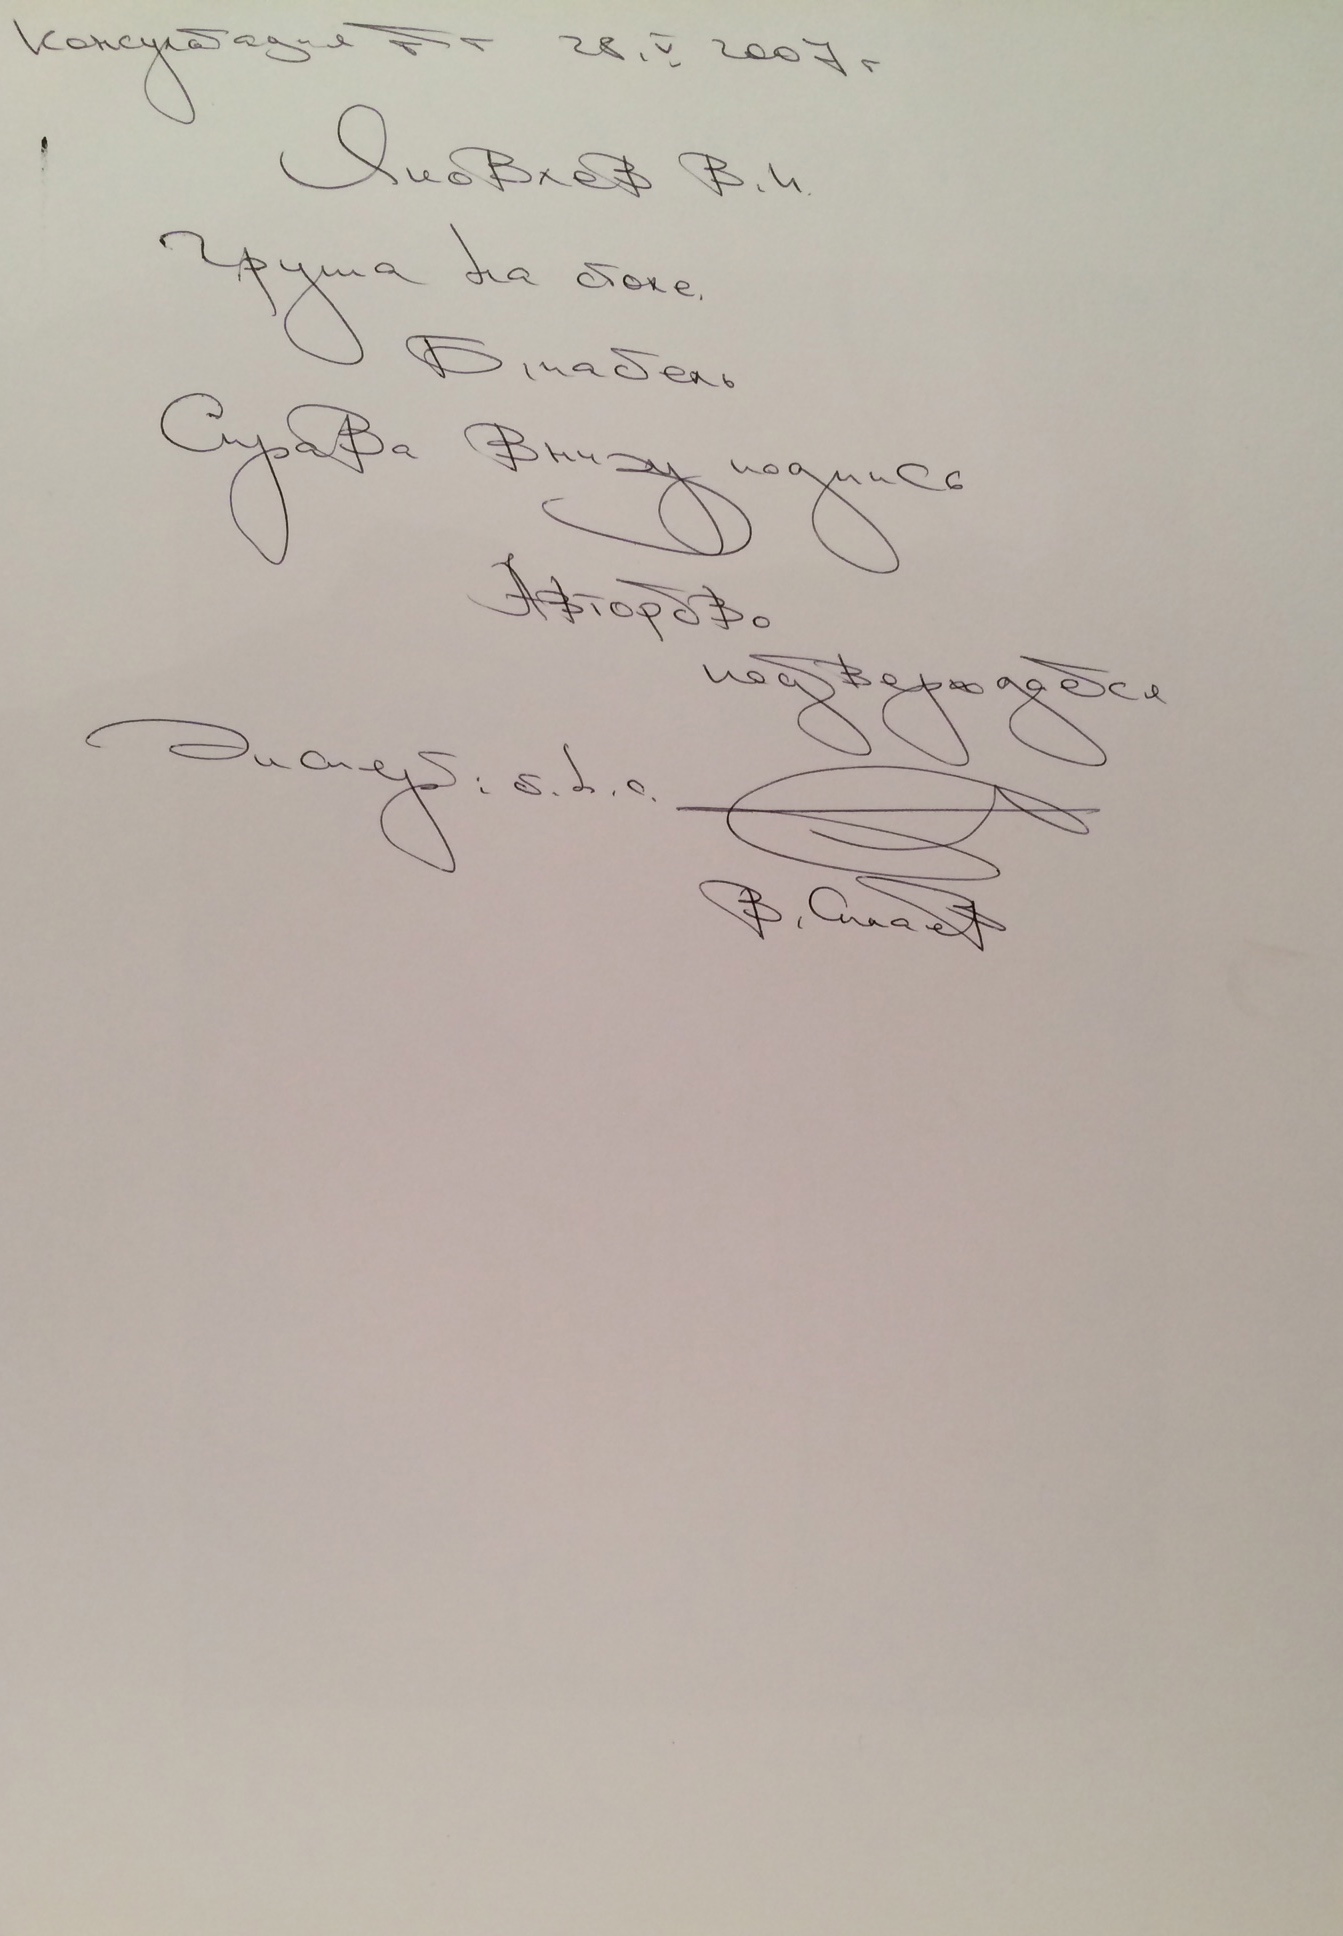 Консультация ГТГ 28.V.2007г
Яковлев В.И.
Груша на столе.
Б., табель
Справа внизу подпись
Авторство
подтверждается
Эксперт:
В. Силаев